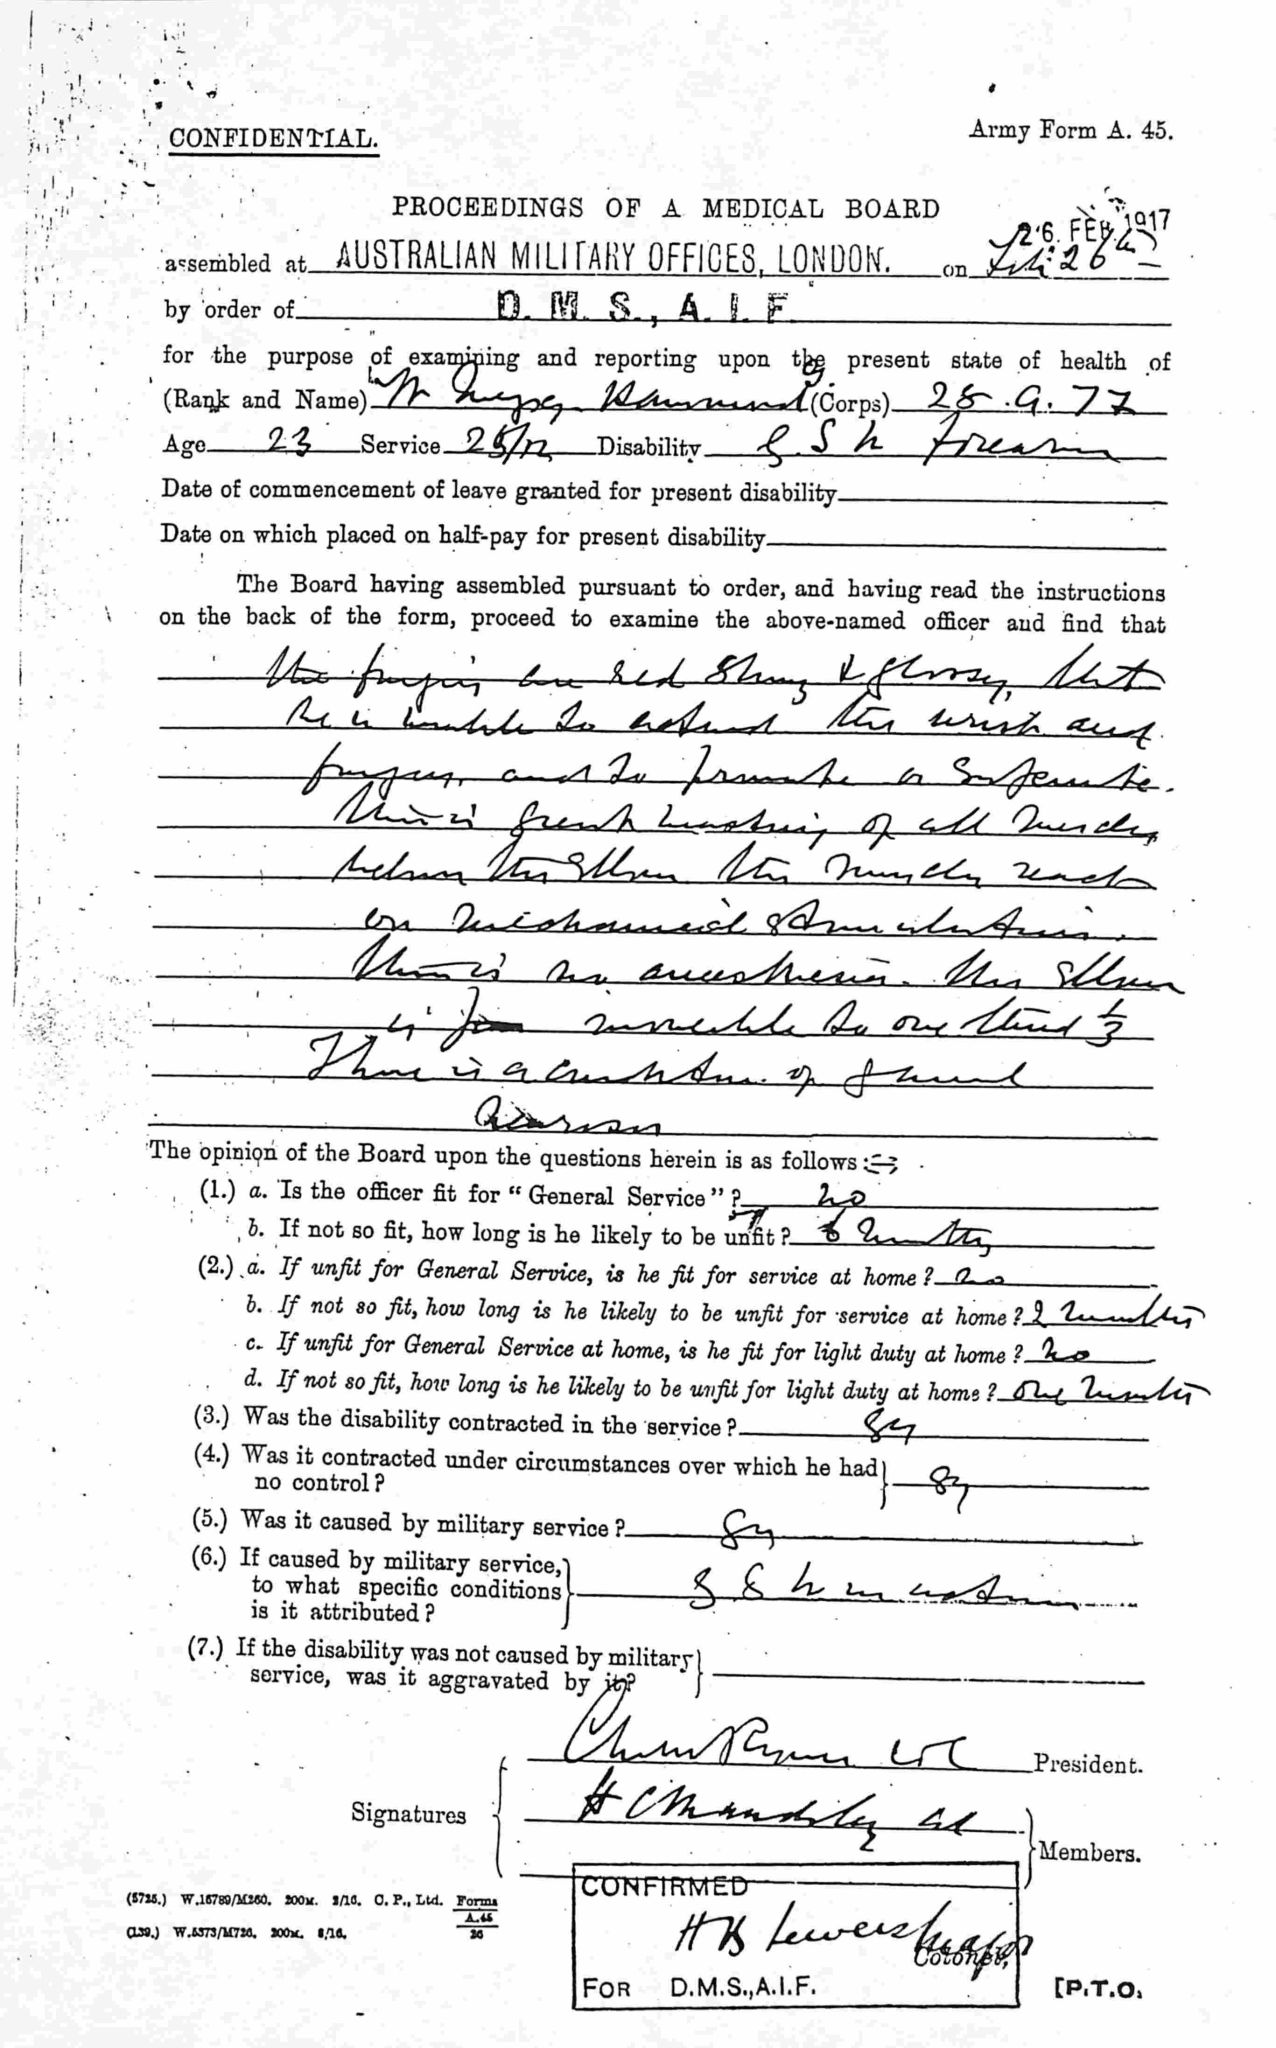 CONFIDENTIAL.
Army Form A. 45.
PROCEEDINGS OF A MEDICAL BOARD
26 FEB 1917
assembled at AUSTRALIAN MILITARY OFFICES, LONDON. on Feb 26th
by order of D. M. S., A. I. F.
for the purpose of examining and reporting upon the present state of health of
(Rank and Name) (Corps)
Age 23 Service Disability G S W Forearm
Date of commencement of leave granted for present disability
Date on which placed on half-pay for present disability
The Board having assembled pursuant to order, and having read the instructions
on the back of the form, proceed to examine the above-named officer and find that
the fingers are red shiny & glossy, that
he is unable to extend the wrist and
fingers, and to pronate or supinate.
There is great wasting of all muscles
below the elbow the muscles react
on mechanical stimulation.
There is no anaesthesia. The elbow
is moveable to one third 1/3
There is a
The opinion of the Board upon the questions herein is as follows :—
(1.) a. Is the officer fit for "General Service"? no
b. If not so fit, how long is he likely to be unfit? 6 months
(2.) a. If unfit for General Service, is he fit for service at home? no
b. If not so fit, how long is he likely to be unfit for service at home? 2 months
c. If unfit for General Service at home, is he fit for light duty at home? no
d. If not so fit, how long is he likely to be unfit for light duty at home? one month
(3.) Was the disability contracted in the service?
(4.) Was it contracted under circumstances over which he had
no control?
(5.) Was it caused by military service?
(6.) If caused by military service,
to what specific conditions
is it attributed? G S W in action
(7.) If the disability was not caused by military
service, was it aggravated by it?
President.
Signatures
Members.
CONFIRMED
Colonel,
FOR D.M.S., A.I.F.
(5725.) W.16789/M260. 200M. 2/16. C. P., Ltd. Forms
A.45
26
(139.) W.5373/M726. 200M. 8/16.
[P.T.O.